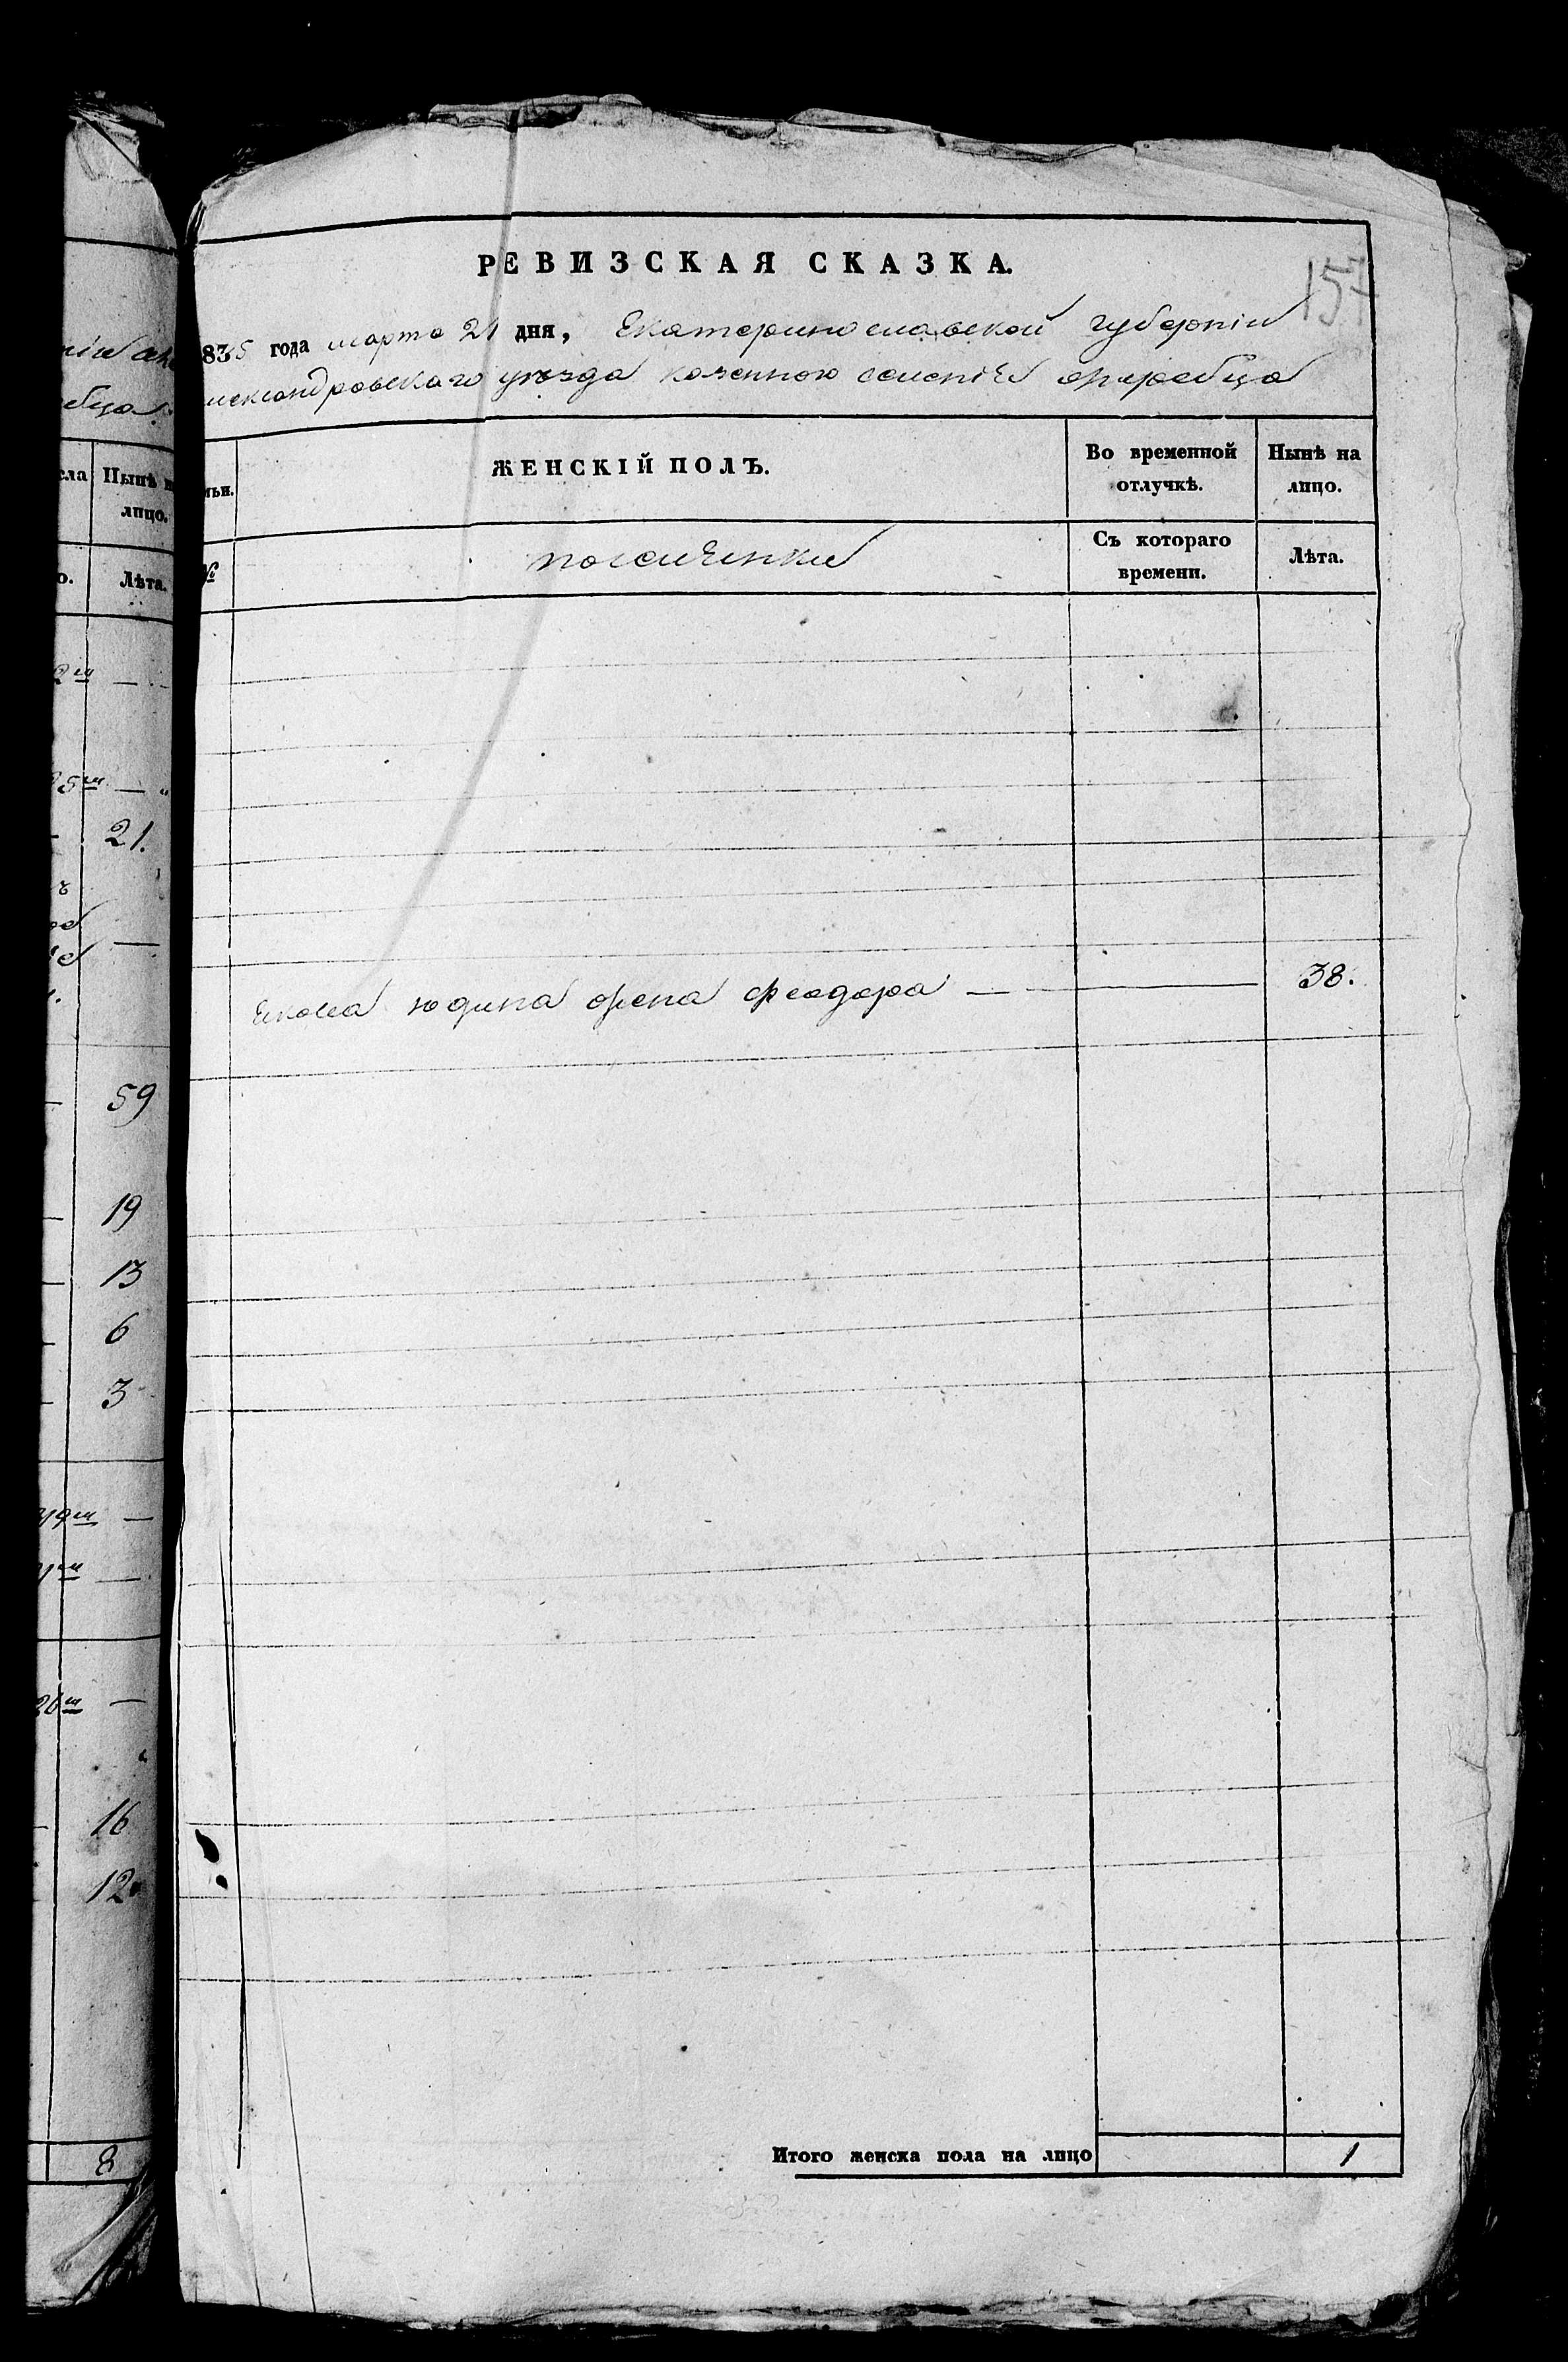 сла Нынѣ
лицо.
о. Лѣта.
21.
59
19
13
6
3
16
12
8
РЕВИЗСКАЯ СКАЗКА.
157
835 года марта 21 дня, Екатеринославской губерніи
лександровскаго уѣзда казенного селенія жеребца
мьи. ЖЕНСКІЙ ПОЛЪ. Во временной отлучкѣ. Нынѣ на лицо.
№ Съ котораго времени. Лѣта.
юдина жена феодора — — 38.
Итого женска пола на лицо 1